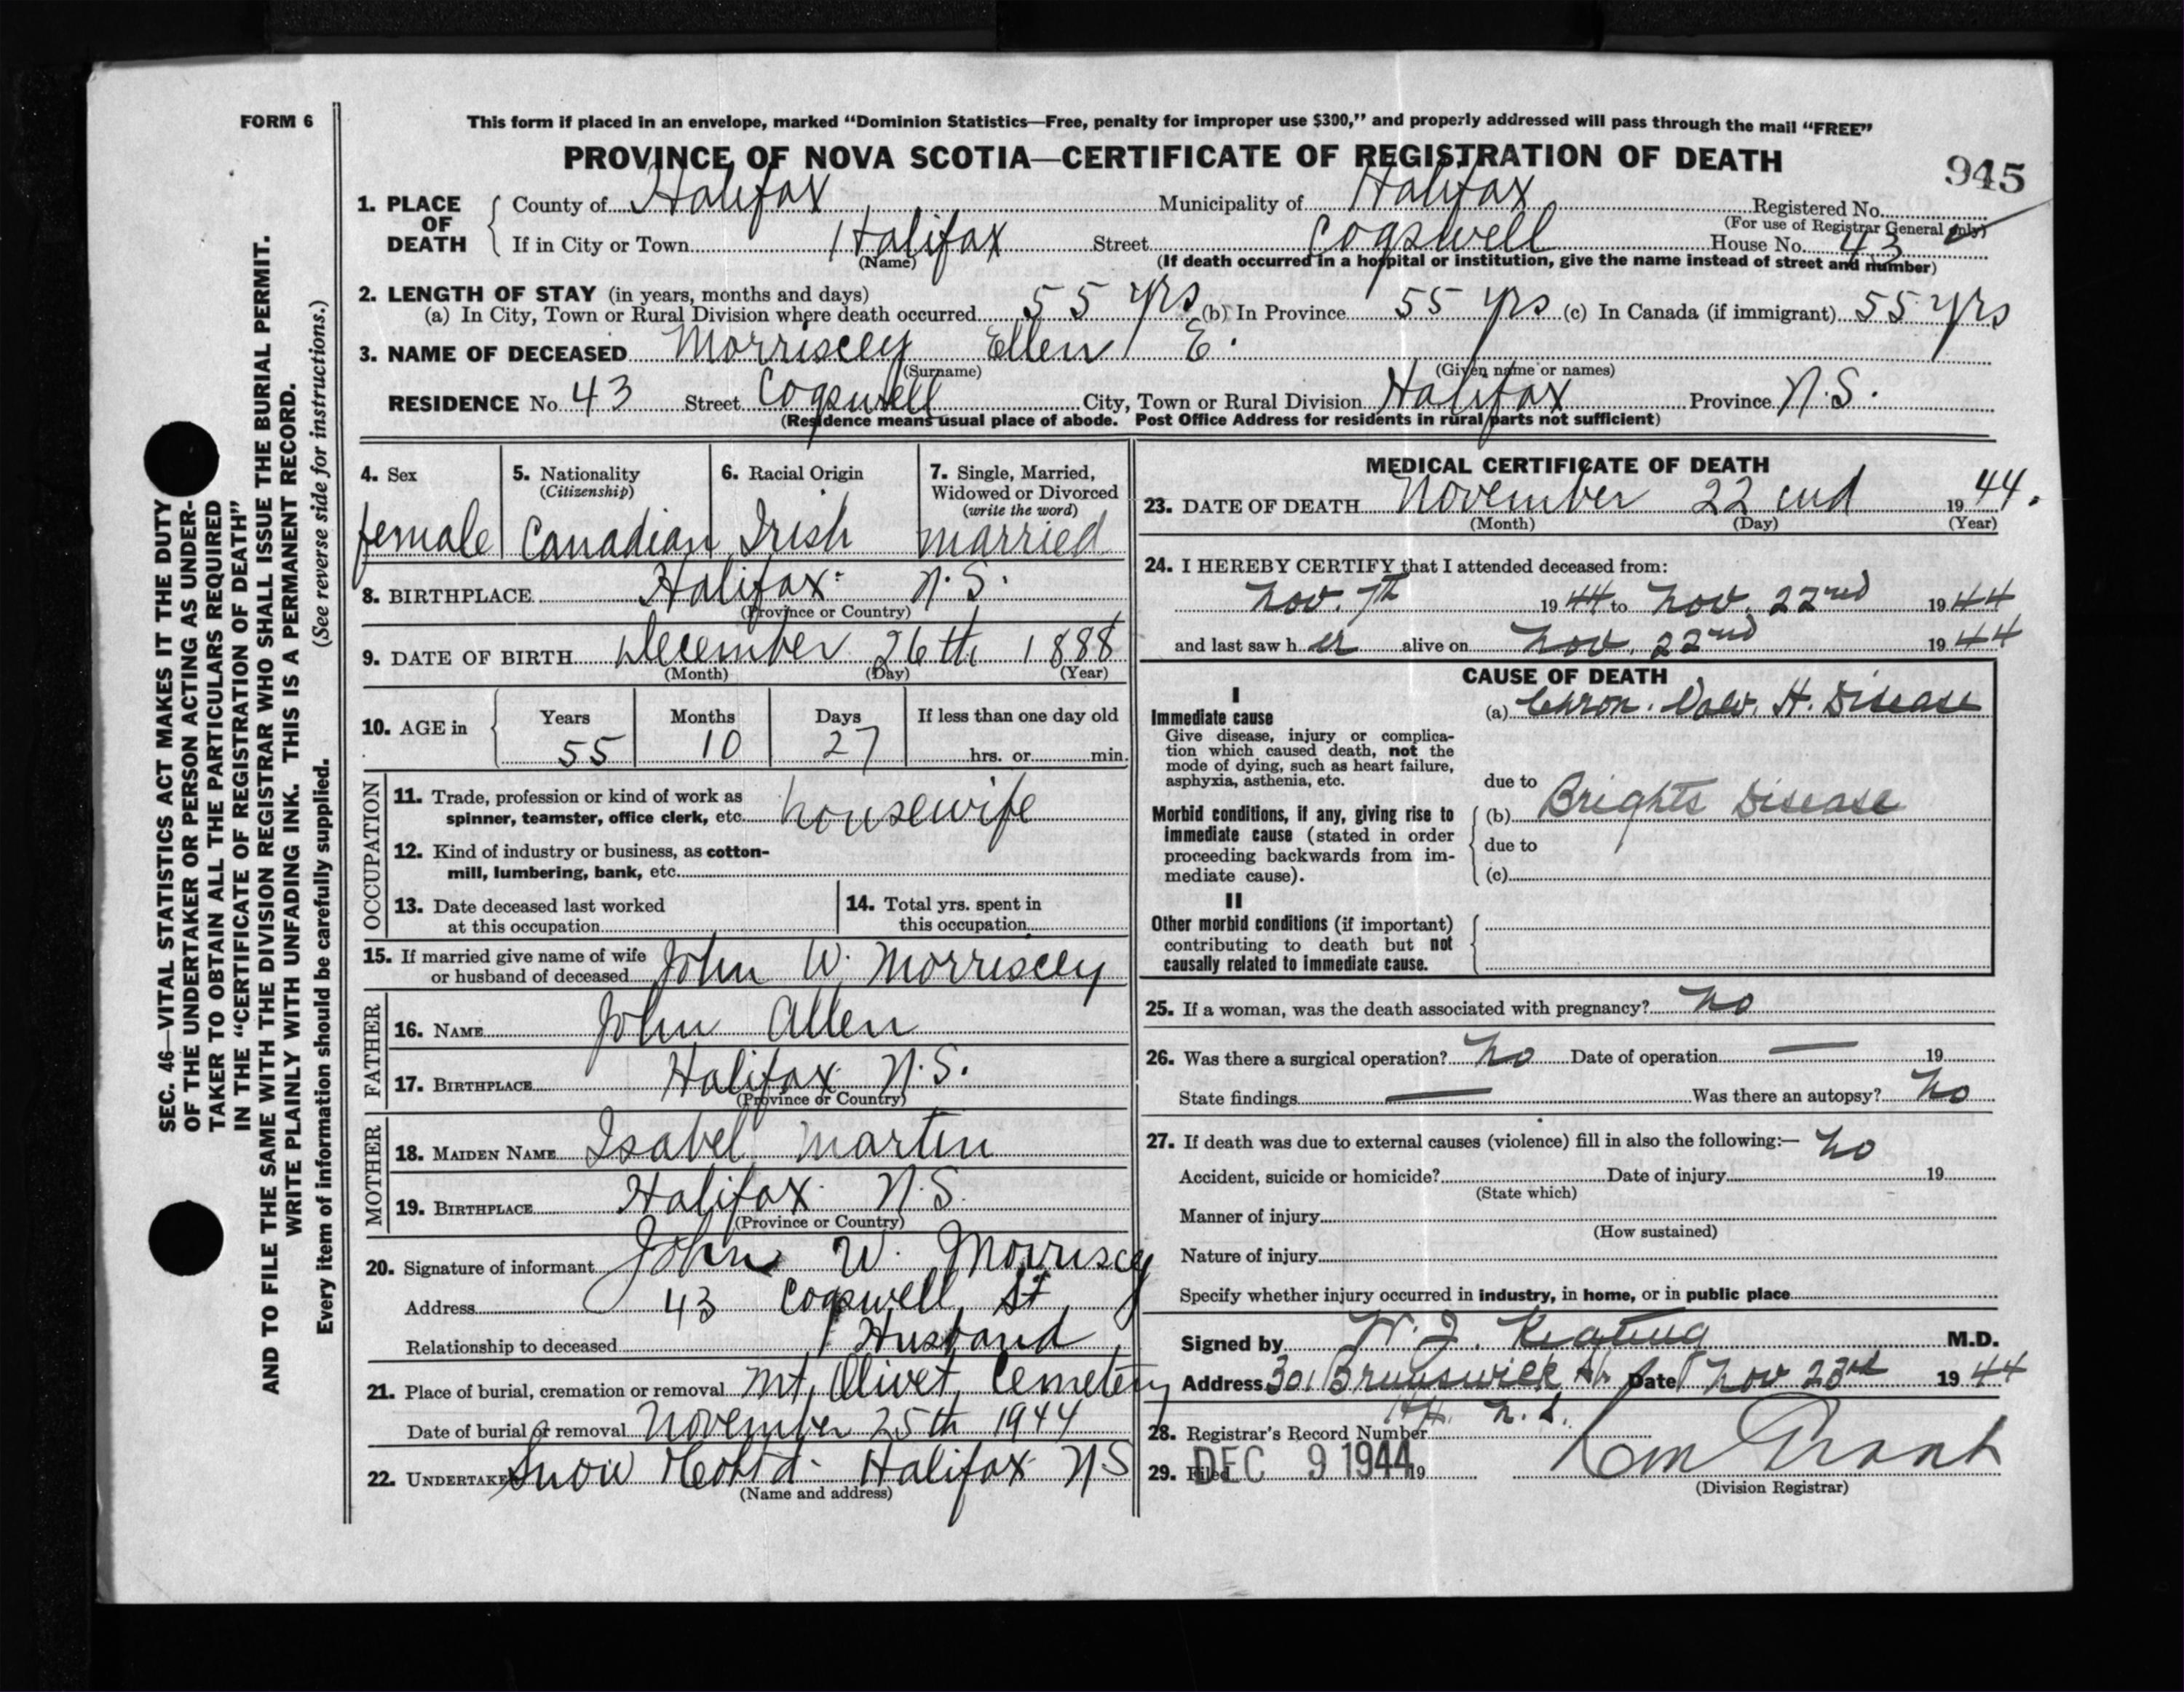 FORM 6
This form if placed in an envelope, marked "Dominion Statistics—Free, penalty for improper use $300," and properly addressed will pass through the mail "FREE"
PROVINCE OF NOVA SCOTIA—CERTIFICATE OF REGISTRATION OF DEATH
945
1. PLACE OF DEATH County of Halifax Municipality of Halifax Registered No.
(For use of Registrar General only)
If in City or Town Halifax Street Cogswell House No. 43
(Name) (If death occurred in a hospital or institution, give the name instead of street and number)
2. LENGTH OF STAY (in years, months and days)
(a) In City, Town or Rural Division where death occurred 55 yrs (b) In Province 55 yrs (c) In Canada (if immigrant) 55 yrs
3. NAME OF DECEASED Morriscey Ellen E.
(Surname) (Given name or names)
RESIDENCE No. 43 Street Cogswell City, Town or Rural Division Halifax Province N.S.
(Residence means usual place of abode. Post Office Address for residents in rural parts not sufficient)
4. Sex 5. Nationality (Citizenship) 6. Racial Origin 7. Single, Married, Widowed or Divorced (write the word)
female Canadian Irish married
8. BIRTHPLACE Halifax N.S.
(Province or Country)
9. DATE OF BIRTH December 26th 1888
(Month) (Day) (Year)
10. AGE in Years Months Days If less than one day old
55 10 27 hrs. or min.
OCCUPATION
11. Trade, profession or kind of work as
spinner, teamster, office clerk, etc. housewife
12. Kind of industry or business, as cotton-
mill, lumbering, bank, etc.
13. Date deceased last worked
at this occupation
14. Total yrs. spent in
this occupation
15. If married give name of wife
or husband of deceased John W. Morriscey
FATHER
16. NAME John Allen
17. BIRTHPLACE Halifax N.S.
(Province or Country)
MOTHER
18. MAIDEN NAME Isabel Martin
19. BIRTHPLACE Halifax N.S.
(Province or Country)
20. Signature of informant John W. Morriscey
Address 43 Cogswell St
Relationship to deceased Husband
21. Place of burial, cremation or removal Mt, Olivet, Cemetery
Date of burial or removal November 25th 1944
22. UNDERTAKER Snow Halifax NS
(Name and address)
MEDICAL CERTIFICATE OF DEATH
23. DATE OF DEATH November 22 1944.
(Month) (Day) (Year)
24. I HEREBY CERTIFY that I attended deceased from:
Nov. 7th 1944 to Nov. 22nd 1944
and last saw her alive on Nov. 22nd 1944
CAUSE OF DEATH
I
Immediate cause
Give disease, injury or complica-
tion which caused death, not the
mode of dying, such as heart failure,
asphyxia, asthenia, etc.
(a) Chron. Valv. H. Disease
due to
Morbid conditions, if any, giving rise to
immediate cause (stated in order
proceeding backwards from im-
mediate cause).
(b) Brights Disease
due to
(c)
II
Other morbid conditions (if important)
contributing to death but not
causally related to immediate cause.
25. If a woman, was the death associated with pregnancy? No
26. Was there a surgical operation? No Date of operation — 19
State findings — Was there an autopsy? No
27. If death was due to external causes (violence) fill in also the following:— No
Accident, suicide or homicide? Date of injury 19
(State which)
Manner of injury
(How sustained)
Nature of injury
Specify whether injury occurred in industry, in home, or in public place
Signed by W. J. Keating M.D.
Address 301 Brunswick St. Date Nov 23rd 1944
Hfx. N.S.
28. Registrar's Record Number
29. Filed DEC 9 1944 19
(Division Registrar)
SEC. 46—VITAL STATISTICS ACT MAKES IT THE DUTY
OF THE UNDERTAKER OR PERSON ACTING AS UNDER-
TAKER TO OBTAIN ALL THE PARTICULARS REQUIRED
IN THE "CERTIFICATE OF REGISTRATION OF DEATH"
AND TO FILE THE SAME WITH THE DIVISION REGISTRAR WHO SHALL ISSUE THE BURIAL PERMIT.
WRITE PLAINLY WITH UNFADING INK. THIS IS A PERMANENT RECORD.
Every item of information should be carefully supplied. (See reverse side for instructions.)